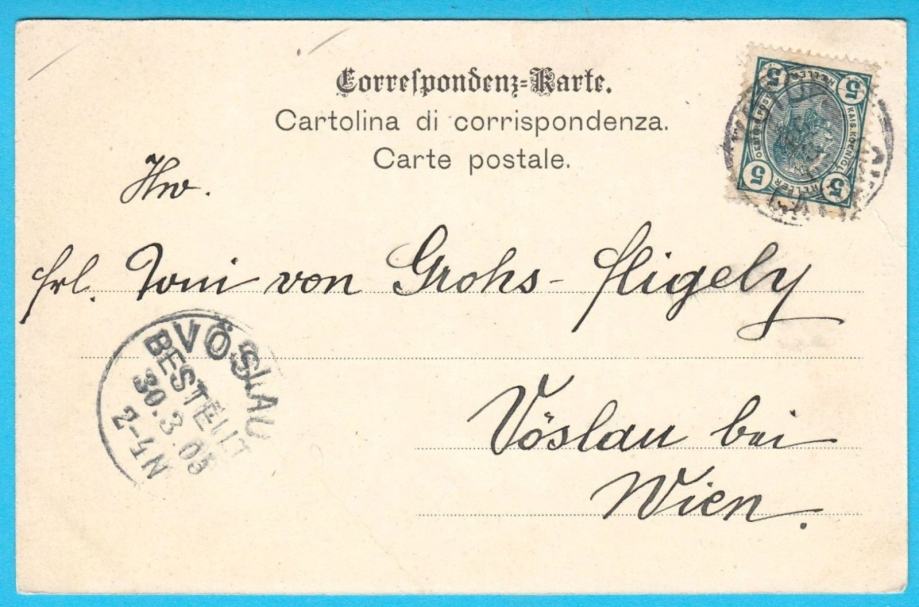 Correspondenz-Karte.
Cartolina di corrispondenza.
Carte postale.
5 5
HELLER
5 5
HELLER
Hw.
Frl. Toni von Grohs-Fligely
VÖSLAU
BESTELLT
30.3.05
2-4N
Vöslau bei
Wien.